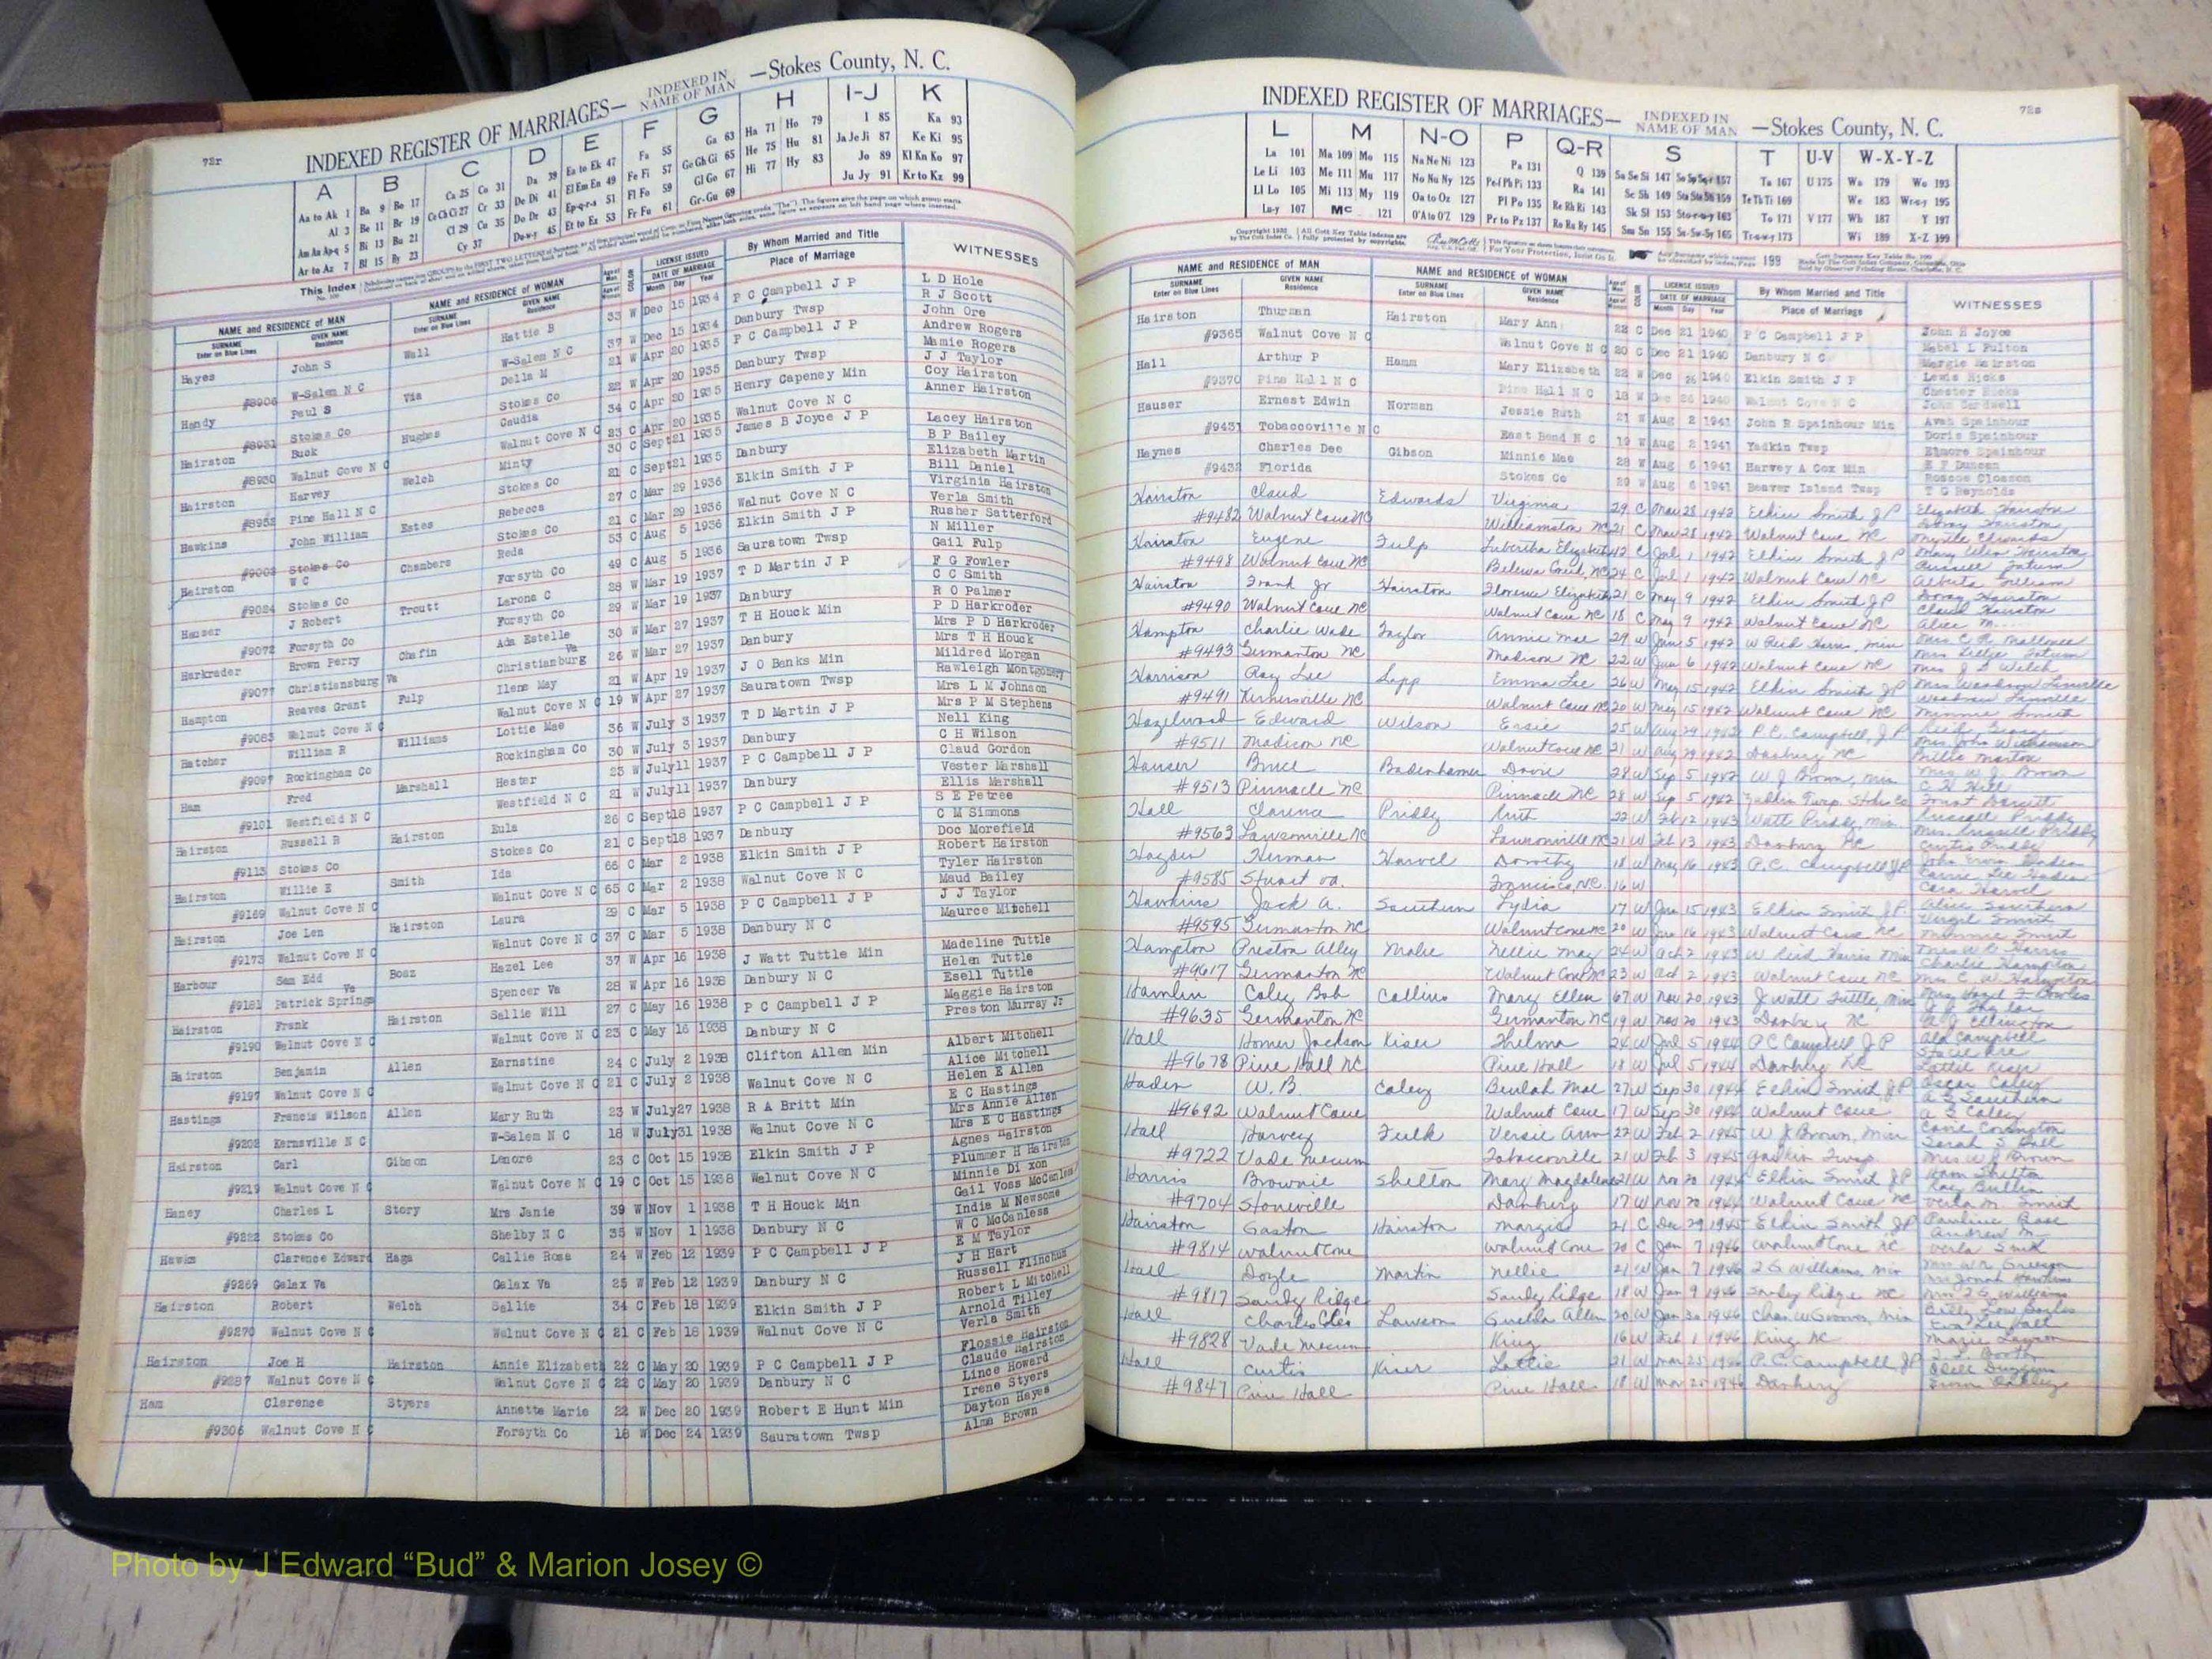 72r
INDEXED REGISTER OF MARRIAGES— INDEXED IN NAME OF MAN —Stokes County, N. C.
A B C D E F G H I-J K
Aa to Ak 1 Ba 9 Bo 17 Ca 25 Co 31 Da 39 Ea to Ek 47 Fa 55 Ga 63 Ha 71 Ho 79 I 85 Ka 93
Al 3 Be 11 Br 19 Ce Ch Ci 27 Cr 33 De Di 41 El Em En 49 Fe Fi 57 Ge Gh Gi 65 He 75 Hu 81 Ja Je Ji 87 Ke Ki 95
Am An Ap-q 5 Bi 13 Bu 21 Cl 29 Cu 35 Do Dr 43 Ep-q-r-s 51 Fl Fo 59 Gl Go 67 Hi 77 Hy 83 Jo 89 Kl Kn Ko 97
Ar to Az 7 Bl 15 By 23 Cy 37 Du-w-y 45 Et to Ez 53 Fr Fu 61 Gr-Gu 69 Ju Jy 91 Kr to Kz 99
This Index
NAME and RESIDENCE OF MAN NAME and RESIDENCE OF WOMAN LICENSE ISSUED By Whom Married and Title WITNESSES
SURNAME Enter on Blue Lines GIVEN NAME Residence SURNAME Enter on Blue Lines GIVEN NAME Residence Age of Man Age of Woman COLOR DATE OF MARRIAGE Month Day Year Place of Marriage
Hayes John S Wall Hattie B 33 W Dec 15 1934 P C Campbell J P L D Hole
R J Scott
#8906 W-Salem N C W-Salem N C 37 W Dec 15 1934 Danbury Twsp John Ore
Handy Paul S Via Della M 21 W Apr 20 1935 P C Campbell J P Andrew Rogers
Mamie Rogers
#8931 Stokes Co Stokes Co 22 W Apr 20 1935 Danbury Twsp J J Taylor
Hairston Buck Hughes Caudia 34 C Apr 20 1935 Henry Capeney Min Coy Hairston
Anner Hairston
#8930 Walnut Cove N C Walnut Cove N C 23 C Apr 20 1935 Walnut Cove N C
Hairston Harvey Welch Minty 30 C Sept 21 1935 James B Joyce J P Lacey Hairston
B P Bailey
#8952 Pine Hall N C Stokes Co 21 C Sept 21 1935 Danbury Elizabeth Martin
Hawkins John William Estes Rebecca 27 C Mar 29 1936 Elkin Smith J P Bill Daniel
Virginia Hairston
#9003 Stokes Co Stokes Co 21 C Mar 29 1936 Walnut Cove N C Verla Smith
Hairston W C Chambers Reda 53 C Aug 5 1936 Elkin Smith J P Rusher Satterford
N Miller
#9024 Stokes Co Forsyth Co 49 C Aug 5 1936 Sauratown Twsp Gail Fulp
Hauser J Robert Troutt Larona C 28 W Mar 19 1937 T D Martin J P F G Fowler
C C Smith
#9072 Forsyth Co Forsyth Co 29 W Mar 19 1937 Danbury R O Palmer
Harkrader Brown Perry Chafin Ada Estelle 30 W Mar 27 1937 T H Houck Min P D Harkroder
Mrs P D Harkroder
#9077 Christiansburg Va Christianburg Va 26 W Mar 27 1937 Danbury Mrs T H Houck
Hampton Reaves Grant Fulp Ilene May 21 W Apr 19 1937 J O Banks Min Mildred Morgan
Rawleigh Montgomery
#9083 Walnut Cove N C Walnut Cove N C 19 W Apr 27 1937 Sauratown Twsp Mrs L M Johnson
Mrs P M Stephens
Hatcher William R Williams Lottie Mae 36 W July 3 1937 T D Martin J P Nell King
C H Wilson
#9097 Rockingham Co Rockingham Co 30 W July 3 1937 Danbury Claud Gordon
Ham Fred Marshall Hester 23 W July 11 1937 P C Campbell J P Vester Marshell
Ellis Marshall
#9101 Westfield N C Westfield N C 21 W July 11 1937 Danbury S E Petree
Hairston Russell R Hairston Eula 26 C Sept 18 1937 P C Campbell J P C M Simmons
Doc Morefield
#9113 Stokes Co Stokes Co 21 C Sept 18 1937 Danbury Robert Hairston
Hairston Willie E Smith Ida 66 C Mar 2 1938 Elkin Smith J P Tyler Hairston
Maud Bailey
#9169 Walnut Cove N C Walnut Cove N C 65 C Mar 2 1938 Walnut Cove N C J J Taylor
Hairston Joe Len Hairston Laura 29 C Mar 5 1938 P C Campbell J P Maurce Mitchell
#9173 Walnut Cove N C Walnut Cove N C 37 C Mar 5 1938 Danbury N C
Harbour Sam Edd Boaz Hazel Lee 37 W Apr 16 1938 J Watt Tuttle Min Madeline Tuttle
Helen Tuttle
#9181 Patrick Springs Va Spencer Va 28 W Apr 16 1938 Danbury N C Esell Tuttle
Hairston Frank Hairston Sallie Will 27 C May 16 1938 P C Campbell J P Maggie Hairston
Preston Murray Jr
#9190 Walnut Cove N C Walnut Cove N C 23 C May 16 1938 Danbury N C
Hairston Benjamin Allen Earnstine 24 C July 2 1938 Clifton Allen Min Albert Mitchell
Alice Mitchell
#9197 Walnut Cove N C Walnut Cove N C 21 C July 2 1938 Walnut Cove N C Helen E Allen
Hastings Francis Wilson Allen Mary Ruth 23 W July 27 1938 R A Britt Min E C Hastings
Mrs Annie Allen
#9202 Kernsville N C W-Salem N C 18 W July 31 1938 Walnut Cove N C Mrs E C Hastings
Hairston Carl Gibson Lenore 23 C Oct 15 1938 Elkin Smith J P Agnes Hairston
Plummer H Hairston
#9219 Walnut Cove N C Walnut Cove N C 19 C Oct 15 1938 Walnut Cove N C Minnie Dixon
Haney Charles L Story Mrs Janie 39 W Nov 1 1938 T H Houck Min Gail Voss McCanless
India M Newsome
#9222 Stokes Co Shelby N C 35 W Nov 1 1938 Danbury N C W C McCanless
Hawks Clarence Edward Haga Callie Rose 24 W Feb 12 1939 P C Campbell J P E M Taylor
J H Hart
#9269 Galax Va Galax Va 25 W Feb 12 1939 Danbury N C Russell Flinchum
Hairston Robert Welch Sallie 34 C Feb 18 1939 Elkin Smith J P Robert L Mitchell
Arnold Tilley
#9270 Walnut Cove N C Walnut Cove N C 21 C Feb 18 1939 Walnut Cove N C Verla Smith
Hairston Joe H Hairston Annie Elizabeth 22 C May 20 1939 P C Campbell J P Flossie Hairston
Claude Hairston
#9287 Walnut Cove N C Walnut Cove N C 22 C May 20 1939 Danbury N C Lince Howard
Ham Clarence Styers Annette Marie 22 W Dec 20 1939 Robert E Hunt Min Irene Styers
Dayton Hayes
#9306 Walnut Cove N C Forsyth Co 18 W Dec 24 1939 Sauratown Twsp Alma Brown
72s
INDEXED REGISTER OF MARRIAGES— INDEXED IN NAME OF MAN —Stokes County, N. C.
L M N-O P Q-R S T U-V W-X-Y-Z
La 101 Ma 109 Mo 115 Na Ne Ni 123 Pa 131 Q 139 Sa Se Si 147 Ta 167 U 175 Wa 179 Wo 193
Le Li 103 Me 111 Mu 117 No Nu Ny 125 Pe-f Ph Pi 133 Ra 141 Sc Sh 149 Te Th Ti 169 We 183 Wr-u-y 195
Ll Lo 105 Mi 113 My 119 Oa to Oz 127 Pl Po 135 Re Rh Ri 143 Sk Sl 153 To 171 V 177 Wh 187 Y 197
Lu-y 107 Mc 121 O'A to O'Z 129 Pr to Pz 137 Ro Ru Ry 145 Sm Sn 155 Su-Sw-Sy 165 Tr-u-w-y 173 Wi 189 X-Z 199
For Your Protection, Insist On It. 199
NAME and RESIDENCE OF MAN NAME and RESIDENCE OF WOMAN LICENSE ISSUED By Whom Married and Title WITNESSES
SURNAME Enter on Blue Lines GIVEN NAME Residence SURNAME Enter on Blue Lines GIVEN NAME Residence Age of Man Age of Woman COLOR DATE OF MARRIAGE Month Day Year Place of Marriage
Hairston Thurman Hairston Mary Ann 22 C Dec 21 1940 P C Campbell J P John H Joyce
Mabel L Fulton
#9365 Walnut Cove N C Walnut Cove N C 20 C Dec 21 1940 Danbury N C Margie Hairston
Hall Arthur P Hamm Mary Elizabeth 22 W Dec 26 1940 Elkin Smith J P Lewis Hicks
Chester Hicks
#9370 Pine Hall N C Pine Hall N C 18 W Dec 26 1940 Walnut Cove N C John Cardwell
Hauser Ernest Edwin Norman Jessie Ruth 21 W Aug 2 1941 John R Spainhour Min Avah Spainhour
Doris Spainhour
#9431 Tobaccoville N C East Bend N C 19 W Aug 2 1941 Yadkin Twsp Elmore Spainhour
Haynes Charles Dee Gibson Minnie Mae 28 W Aug 6 1941 Harvey A Cox Min E F Duncan
Roscoe Closson
#9432 Florida Stokes Co 29 W Aug 6 1941 Beaver Island Twsp T G Reynolds
Hairston Claud Edwards Virginia 29 C Mar 28 1942 Elkin Smith J P Elizabeth Hairston
#9482 Walnut Cove NC Williamston NC 21 C Mar 28 1942 Walnut Cove NC Myrtle Edwards
Hairston Eugene Fulp Lubertha Elizabeth 42 C Jul 1 1942 Elkin Smith J P Mary Ellen Hairston
#9498 Walnut Cove NC Belews Creek, NC 24 C Jul 1 1942 Walnut Cove NC Alberta
Hairston Frank Jr Hairston Florence Elizabeth 21 C May 9 1942 Elkin Smith J P Hairston
Claud Hairston
#9490 Walnut Cove NC Walnut Cove NC 18 C May 9 1942 Walnut Cove NC Alice
Hampton Charlie Wade Taylor Annie Mae 29 W Jun 5 1942 W Reid Harris, Min
#9493 Germanton NC Madison NC 22 W Jun 6 1942 Walnut Cove NC Mrs J D Welch
Harrison Ray Lee Sapp Emma Lee 26 W May 15 1942 Elkin Smith J P
#9491 Kernersville NC Walnut Cove NC 20 W May 15 1942 Walnut Cove NC Minnie Smith
Hazelwood Edward Wilson Ersie 25 W Aug 29 1942 P. C. Campbell, J P
Mrs. John Williamson
#9511 Madison NC Walnut Cove NC 21 W Aug 29 1942 Danbury NC Billie Morton
Hauser Bruce Badenhamer Dovie 28 W Sep 5 1942 W J Brown, Min Mrs W. J. Brown
C H Hill
#9513 Pinnacle NC Pinnacle NC 28 W Sep 5 1942 Yadkin Twsp. Stokes Co
Hall Clarence Priddy Ruth 22 W Feb 12 1943 Watt Priddy, Min. Russell Priddy
Mrs. Russell Priddy
#9563 Lawsonville NC Lawsonville NC 21 W Feb 13 1943 Danbury NC Curtis Priddy
Hayden Herman Harvel Dorothy 18 W May 16 1943 P. C. Campbell J P
#9585 Stuart Va. Francisco, NC. 16 W Cora Harvel
Hawkins Jack A. Southern Lydia 17 W Jun 15 1943 Elkin Smith J P. Alice Southern
Virgil Smith
#9595 Germanton NC Walnut Cove NC 20 W Jun 16 1943 Walnut Cove NC Minnie Smith
Hampton Preston Alley Mabe Nellie May 24 W Oct 2 1943 W Reid Harris Min Mrs W R Harris
Charlie Hampton
#9617 Germanton NC Walnut Cove NC 23 W Oct 2 1943 Walnut Cove NC Mrs C W Hampton
Hamlin Coley Bob Collins Mary Ellen 67 W Nov 20 1943 J Watt Tuttle, Min
#9635 Germanton NC Germanton NC 19 W Nov 20 1943 Danbury NC
Hall Homer Jackson Kiser Thelma 24 W Jul 5 1944 P C Campbell J P Ola Campbell
#9678 Pine Hall NC Pine Hall 18 W Jul 5 1944 Danbury NC Lottie Kiser
Haden W. B Coley Beulah Mae 27 W Sep 30 1944 Elkin Smith J P Oscar Coley
#9692 Walnut Cove Walnut Cove 17 W Sep 30 1944 Walnut Cove
Hall Harvey Fulk Versie Ann 22 W Feb 2 1945 W J Brown, Min Covington
Sarah S Hall
#9722 Vade Mecum Tobaccoville 21 W Feb 3 1945 Yadkin Twsp. Mrs W J Brown
Harris Brownie Shelton Mary Magdalene 21 W Nov 20 1944 Elkin Smith J P Shelton
Ray Bullin
#9704 Stoneville Danbury 17 W Nov 20 1944 Walnut Cove NC Verla M. Smith
Hairston Gaston Hairston Margie 21 C Dec 29 1945 Elkin Smith, J P Pauline
#9814 Walnut Cove Walnut Cove 20 C Jan 7 1946 Walnut Cove NC Verla Smith
Hall Doyle Martin Nellie 21 W Jan 7 1946 Williams, Min
#9817 Sandy Ridge Sandy Ridge 18 W Jan 9 1946 Sandy Ridge NC
Hall Charles Cleo Lawson Allen 20 W Jan 30 1946 Min
#9828 Vade Mecum King 16 W Feb 1 1946 King NC
Hall Curtis Kiser Lottie 21 W Mar 25 1946 P. C. Campbell J P
#9847 Pine Hall Pine Hall 18 W Mar 25 1946 Danbury
Photo by J Edward “Bud” & Marion Josey ©